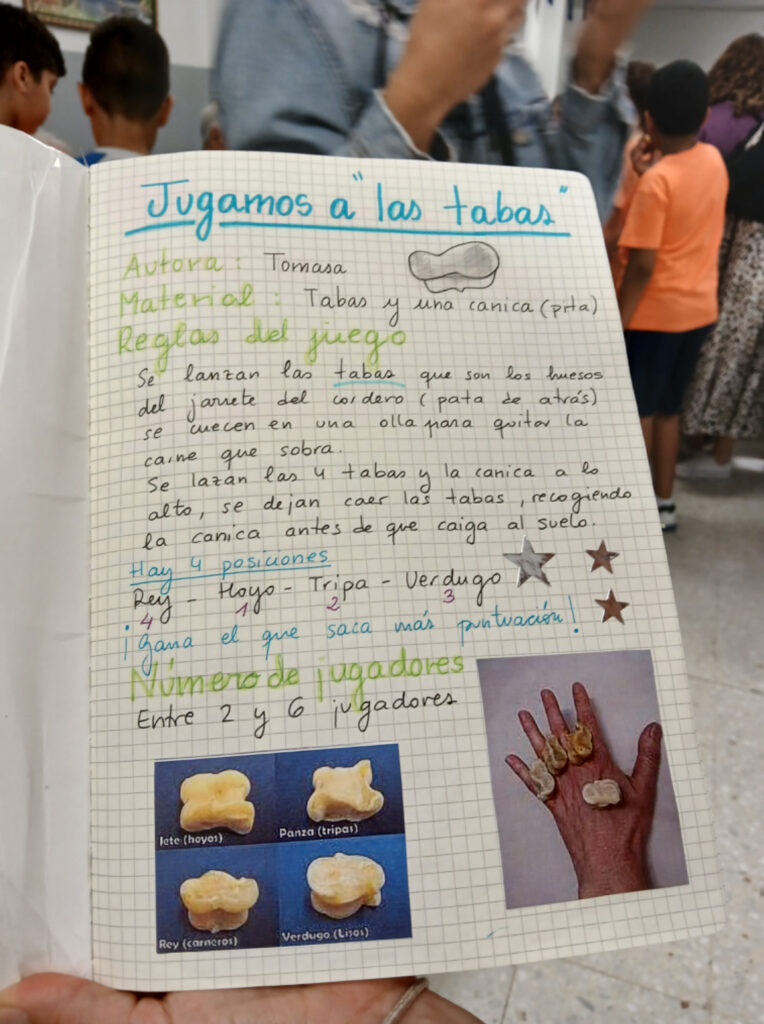 Jugamos a "las tabas"
Autora: Tomasa
Material: Tabas y una canica (pita)
Reglas del juego
Se lanzan las tabas que son los huesos
del jarrete del cordero (pata de atrás)
se cuecen en una olla para quitar la
carne que sobra.
Se lazan las 4 tabas y la canica a lo
alto, se dejan caer las tabas, recogiendo
la canica antes de que caiga al suelo.
Hay 4 posiciones
Rey - Hoyo - Tripa - Verdugo
4 1 2 3
¡Gana el que saca más puntuación!
Número de jugadores
Entre 2 y 6 jugadores
Jete (hoyos)
Panza (tripas)
Rey (carneros)
Verdugo (Lisos)